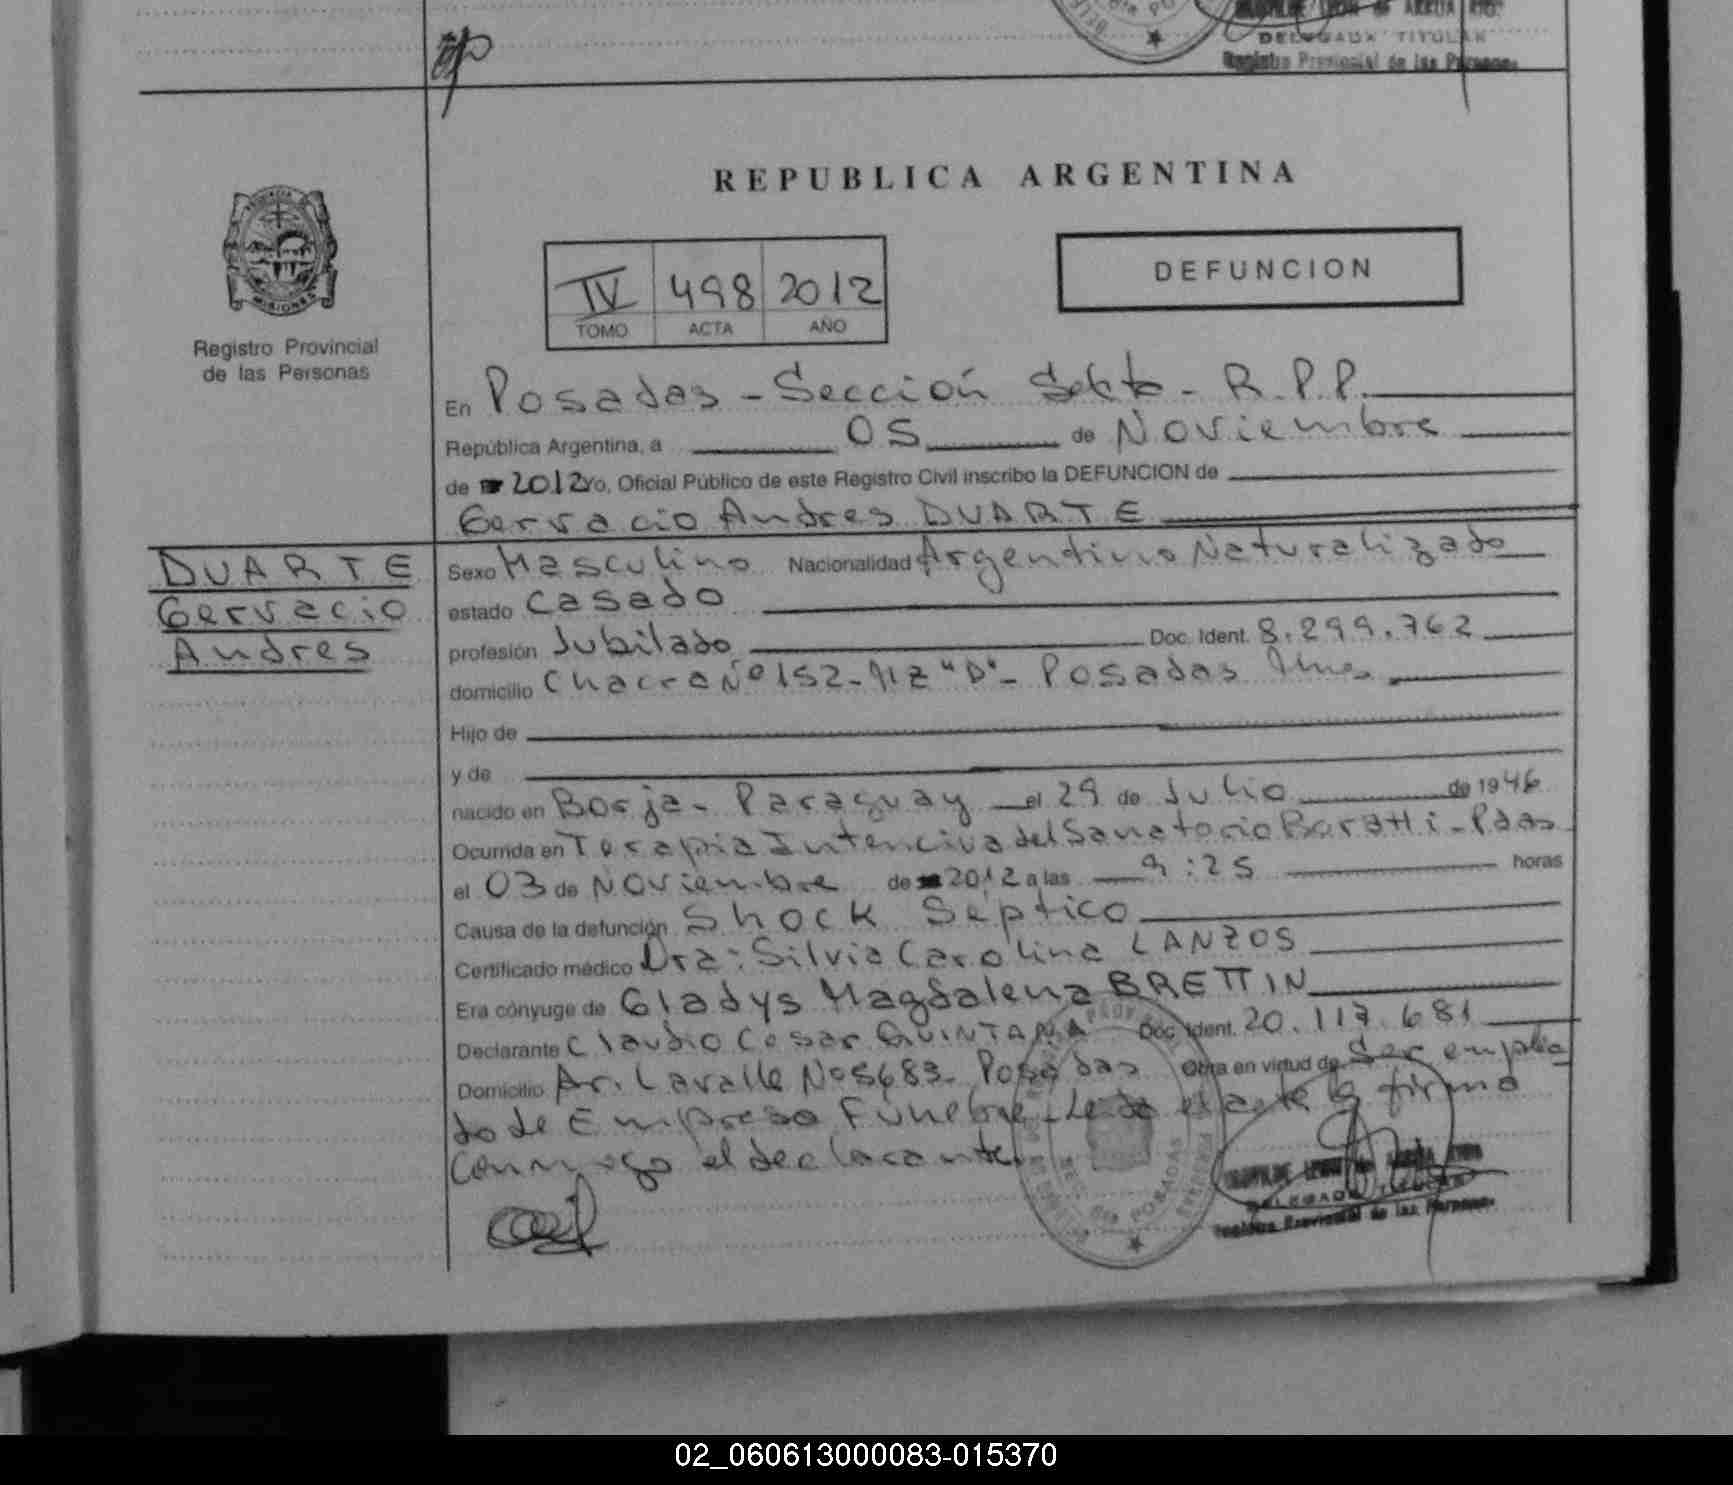 DELEGADA TITULAR
Registro Provincial de las Personas
REPUBLICA ARGENTINA
IV 498 2012
TOMO ACTA AÑO
DEFUNCION
MISIONES
Registro Provincial
de las Personas
En Posadas - Sección Sexta - R.P.P.
República Argentina, a 05 de Noviembre
de 2012 Yo, Oficial Público de este Registro Civil inscribo la DEFUNCION de
Gervacio Andres DUARTE
DUARTE
Gervacio
Andres
Sexo Masculino Nacionalidad Argentino Naturalizado
estado Casado
profesión Jubilado Doc. Ident. 8.299.762
domicilio Chacra Nº 152 - Mz "D" - Posadas Mnes.
Hijo de
y de
nacido en Borja - Paraguay el 29 de Julio de 1946
Ocurrida en Terapia Intenciva del Sanatorio Boratti - Pdas
el 03 de Noviembre de 2012 a las 9:25 horas
Causa de la defunción Shock Séptico
Certificado médico Dra: Silvia Carolina LANZOS
Era cónyuge de Gladys Magdalena BRETTIN
Declarante Claudio Cesar QUINTANA Doc. Ident. 20.117.681
Domicilio Av. Lavalle Nº 5683 - Posadas Obra en virtud de Ser emplea
do de Empresa Fúnebre - Leida el acta la firma
conmigo el declarante.
POSADAS
DELEGADA TITULAR
Registro Provincial de las Personas
02_060613000083-015370